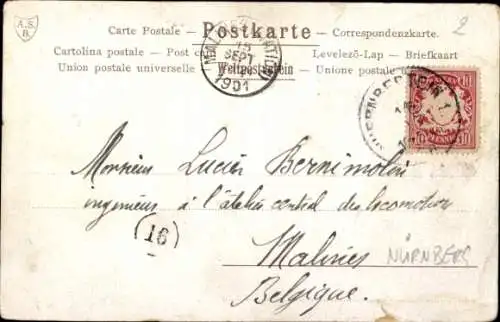 A.S.
B.
Carte Postale – Postkarte – Correspondenzkarte.
Cartolina postale – Post – Levelező-Lap – Briefkaart
Union postale universelle Weltpostverein – Unione postale
2
15
SEPT
1901
10 10
Monsieur Lucien Bernimolin
ingénieur à l'atelier central des locomotives
16
Malines
NÜRNBERG
Belgique.